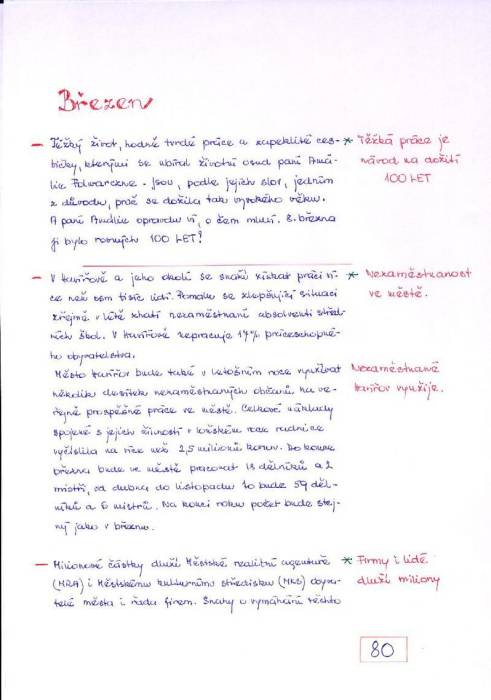 Březen
– Těžký život, hodně tvrdé práce a zapeklité ces-
tičky, kterými se ubíral životní osud paní Amá-
lie - jsou, podle jejích slov, jedním
z důvodů, proč se dožila tak vysokého věku.
A paní Amálie opravdu ví, o čem mluví. 8. března
jí bylo rovných 100 LET!
* Těžká práce je
návod na dožití
100 LET
– V Havířově a jeho okolí se snaží získat práci ví-
ce než osm tisíc lidí. Pomalu se zlepšující situaci
zřejmě v létě zhatí nezaměstnaní absolventi střed-
ních škol. V Havířově nepracuje 17% práceschopné-
ho obyvatelstva.
* Nezaměstnanost
ve městě.
Město Havířov bude také v letošním roce využívat
několik desítek nezaměstnaných občanů na ve-
řejně prospěšné práce ve městě. Celkové náklady
spojené s jejich činností v loňském roce radnice
vyčíslila na více než 2,5 milionů korun. Do konce
března bude ve městě pracovat 18 dělníků a 2
mistři, od dubna do listopadu to bude 59 děl-
níků a 6 mistrů. Na konci roku počet bude stej-
ný jako v březnu.
Nezaměstnané
Havířov využije.
– Milionové částky dluží Městské realitní agentuře
(MRA) i Městskému kulturnímu středisku (MKS) obyva-
telé města i řada firem. Snahy o vymáhání těchto
* Firmy i lidé
dluží miliony
80